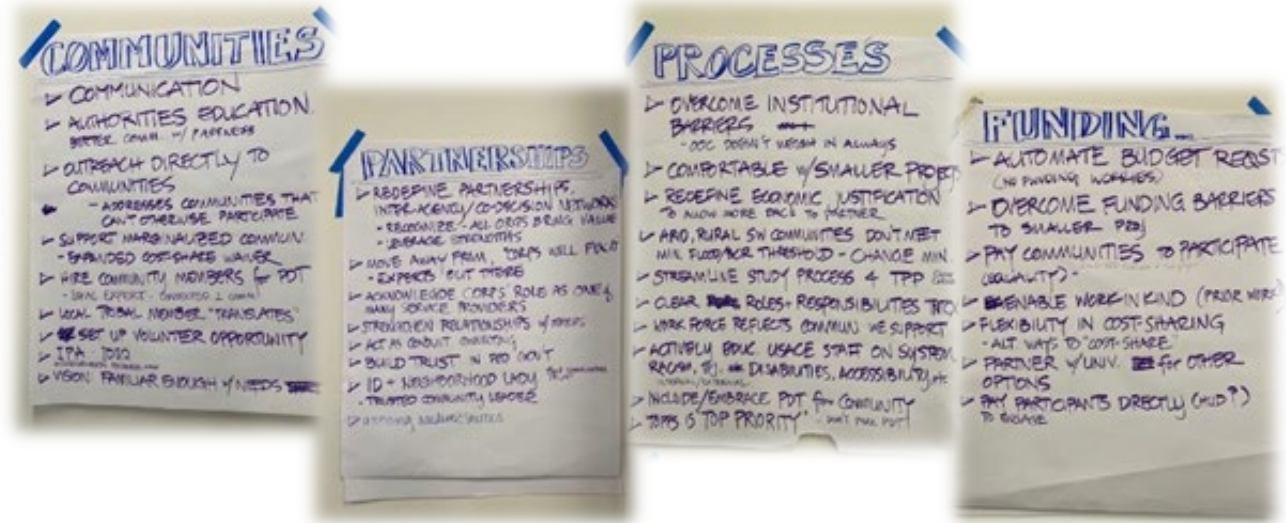 COMMUNITIES
COMMUNICATION
AUTHORITIES EDUCATION.
BETTER COMM. W/ PARTNERS
OUTREACH DIRECTLY TO
COMMUNITIES
- ADDRESSES COMMUNITIES THAT
CAN'T OTHERWISE PARTICIPATE
SUPPORT MARGINALIZED COMMUN.
- EXPANDED COST-SHARE WAIVER
HIRE COMMUNITY MEMBERS for PDT
- LOCAL EXPERT -
LOCAL TRIBAL MEMBER "TRANSLATES"
SET UP VOLUNTER OPPORTUNITY
IPA
VISION FAMILIAR ENOUGH W/ NEEDS
PARTNERSHIPS
REDEFINE PARTNERSHIPS,
INTER-AGENCY/CO-DECISION NETWORKS
- RECOGNIZE - ALL ORGS BRING VALUE
- LEVERAGE STRENGTHS
MOVE AWAY FROM, "CORPS WILL FIX IT"
- EXPERTS OUT THERE
ACKNOWLEDGE CORPS' ROLE AS ONE of
MANY SERVICE PROVIDERS
STRENGTHEN RELATIONSHIPS W/
ACT AS CONDUIT
BUILD TRUST IN FED GOV'T
ID + NEIGHBORHOOD LADY
- TRUSTED COMMUNITY LEADER
PROCESSES
OVERCOME INSTITUTIONAL
BARRIERS
- DOESN'T WEIGH IN ALWAYS
COMFORTABLE W/SMALLER PROJECTS
REDEFINE ECONOMIC JUSTIFICATION
TO ALLOW MORE BACK TO PARTNER
ARID, RURAL SW COMMUNITIES DON'T MEET
MIN. FLOOD/BCR THRESHOLD - CHANGE MIN.
STREAMLINE STUDY PROCESS & TPP
CLEAR ROLES + RESPONSIBILITIES
WORK FORCE REFLECTS COMMUN WE SUPPORT
ACTIVELY EDUC. USACE STAFF ON SYSTEM.
RACISM, EJ, DISABILITIES, ACCESSIBILITY, etc.
INTERNAL/EXTERNAL
INCLUDE/EMBRACE PDT for COMMUNITY
IS "TOP PRIORITY" - DON'T PULL PDT
FUNDING
AUTOMATE BUDGET REQST
(NO FUNDING WORRIES)
OVERCOME FUNDING BARRIERS
TO SMALLER PROJ
PAY COMMUNITIES TO PARTICIPATE
(EQUALITY) -
ENABLE WORK IN KIND (PRIOR WORK)
FLEXIBILITY IN COST-SHARING
- ALT WAYS TO "COST-SHARE"
PARTNER W/UNIV. for OTHER
OPTIONS
PAY PARTICIPANTS DIRECTLY (HUD?)
TO ENGAGE